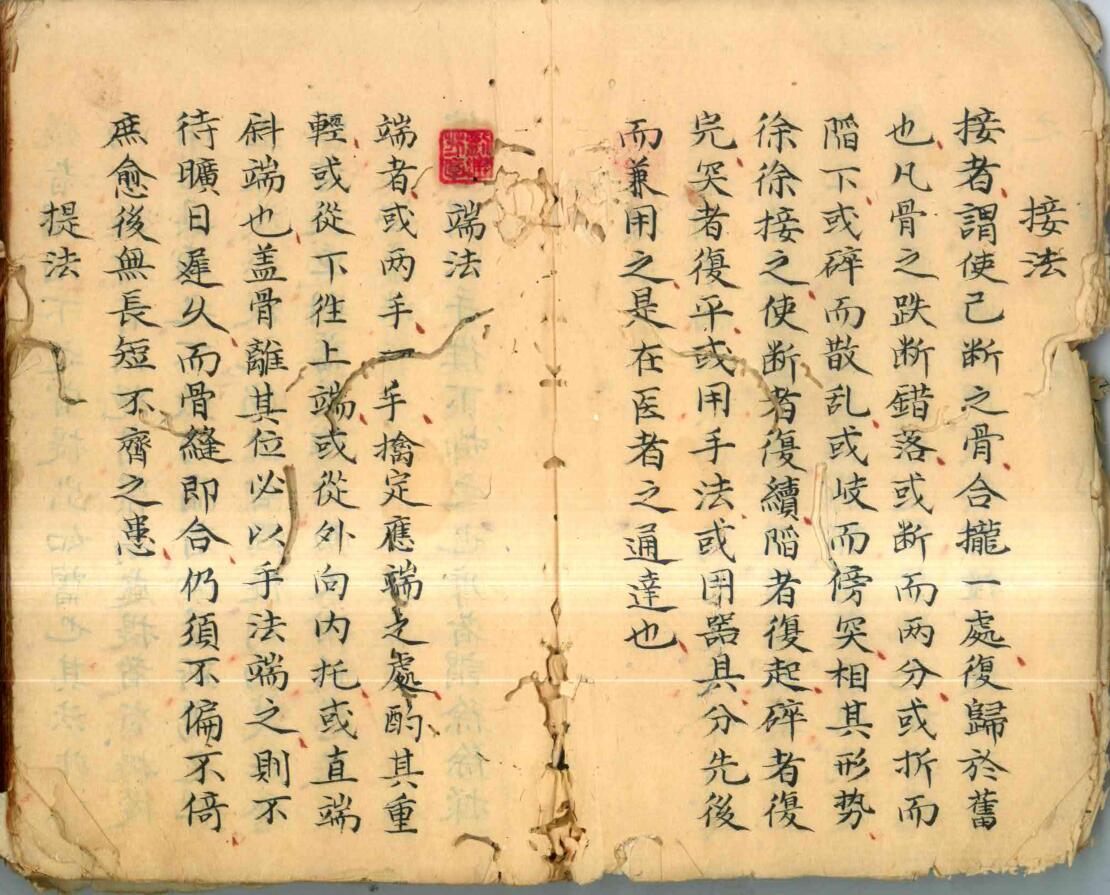 接法
接者謂使已断之骨合攏一處復歸於舊
也凡骨之跌断錯落或断而两分或折而
陷下或碎而散乱或岐而傍突相其形势
徐徐接之使断者復續陷者復起碎者復
完突者復平或用手法或用器具分先後
而兼用之是在医者之通達也
端法
端者或两手一手擒定應端之處酌其重
輕或從下往上端或從外向内托或直端
斜端也盖骨離其位必以手法端之則不
待曠日遲久而骨縫即合仍須不偏不倚
庶愈後無長短不齊之患
提法